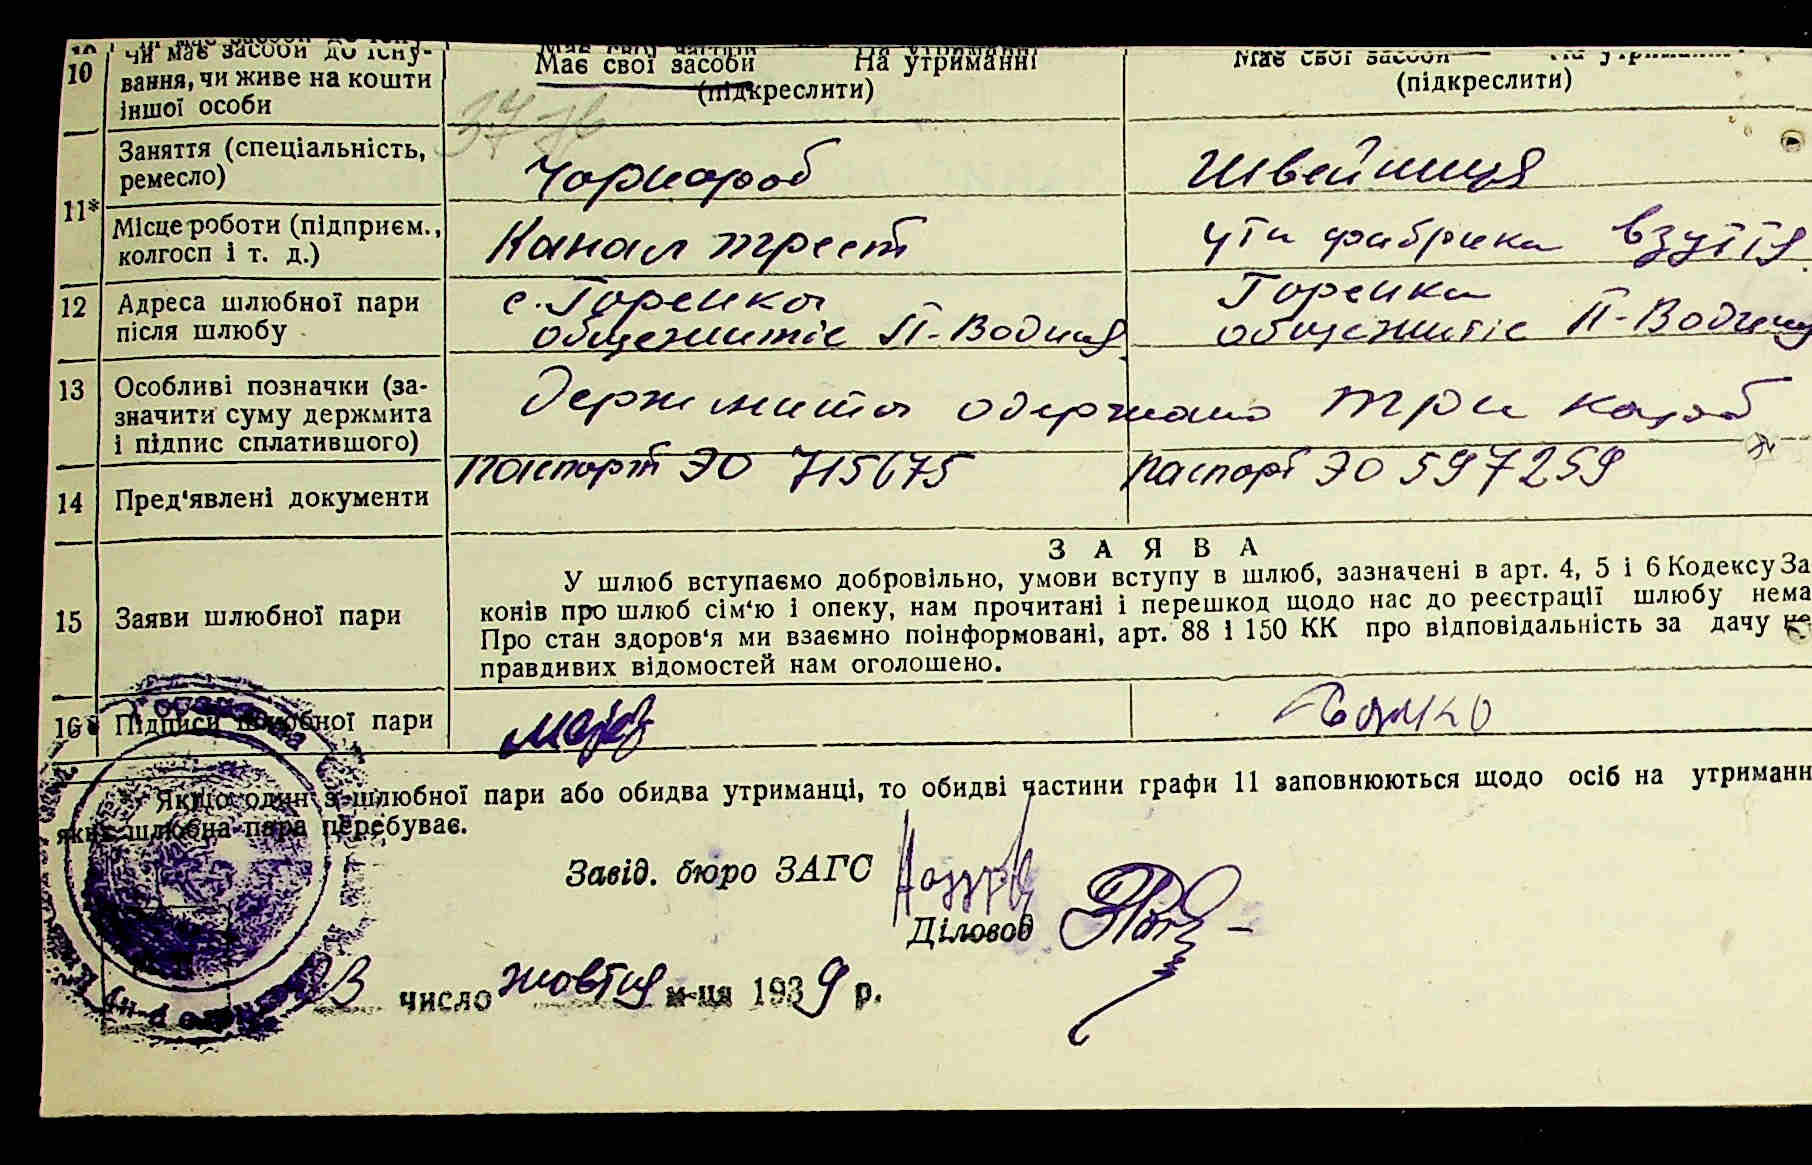 10 чи має засоби до існу- Має свої засоби На утриманні Має свої засоби
вання, чи живе на кошти (підкреслити) (підкреслити)
іншої особи
37 76
11* Заняття (спеціальність, ремесло) Чорнороб Швейниця
Місце роботи (підприєм., колгосп і т. д.) Канал трест УТИ фабрика взуття
12 Адреса шлюбної пари с. Горенка Горенка
після шлюбу общежитіє П-Водиця общежитіє П-Водиця
13 Особливі позначки (за-
значити суму держмита Держмита одержано три карб
і підпис сплатившого)
14 Пред'явлені документи паспорт ЭО 715675 паспорт ЭО 597259
З А Я В А
У шлюб вступаємо добровільно, умови вступу в шлюб, зазначені в арт. 4, 5 і 6 Кодексу За
15 Заяви шлюбної пари конів про шлюб сім'ю і опеку, нам прочитані і перешкод щодо нас до реєстрації шлюбу нема
Про стан здоров'я ми взаємно поінформовані, арт. 88 і 150 КК про відповідальність за дачу не
правдивих відомостей нам оголошено.
16 Підписи шлюбної пари
Якщо один з шлюбної пари або обидва утриманці, то обидві частини графи 11 заповнюються щодо осіб на утриманн
яких шлюбна пара перебуває.
Завід. бюро ЗАГС
Діловод
23 число жовтня м-ця 1939 р.